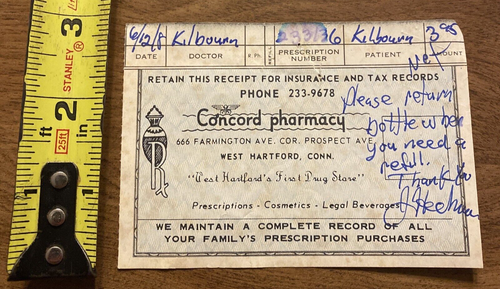 6/12/8 Kilbourn 233136 Kilbourn 3.95
DATE DOCTOR R.PH. REFILLS PRESCRIPTION NUMBER PATIENT AMOUNT
RETAIN THIS RECEIPT FOR INSURANCE AND TAX RECORDS
PHONE 233-9678
Concord pharmacy
666 FARMINGTON AVE. COR. PROSPECT AVE.
WEST HARTFORD, CONN.
"West Hartford's First Drug Store"
Prescriptions - Cosmetics - Legal Beverages
WE MAINTAIN A COMPLETE RECORD OF ALL
YOUR FAMILY'S PRESCRIPTION PURCHASES
Please return
bottle when
you need a
refill.
Thank you
STANLEY®
3
2
1
ft
in
25ft
Rx